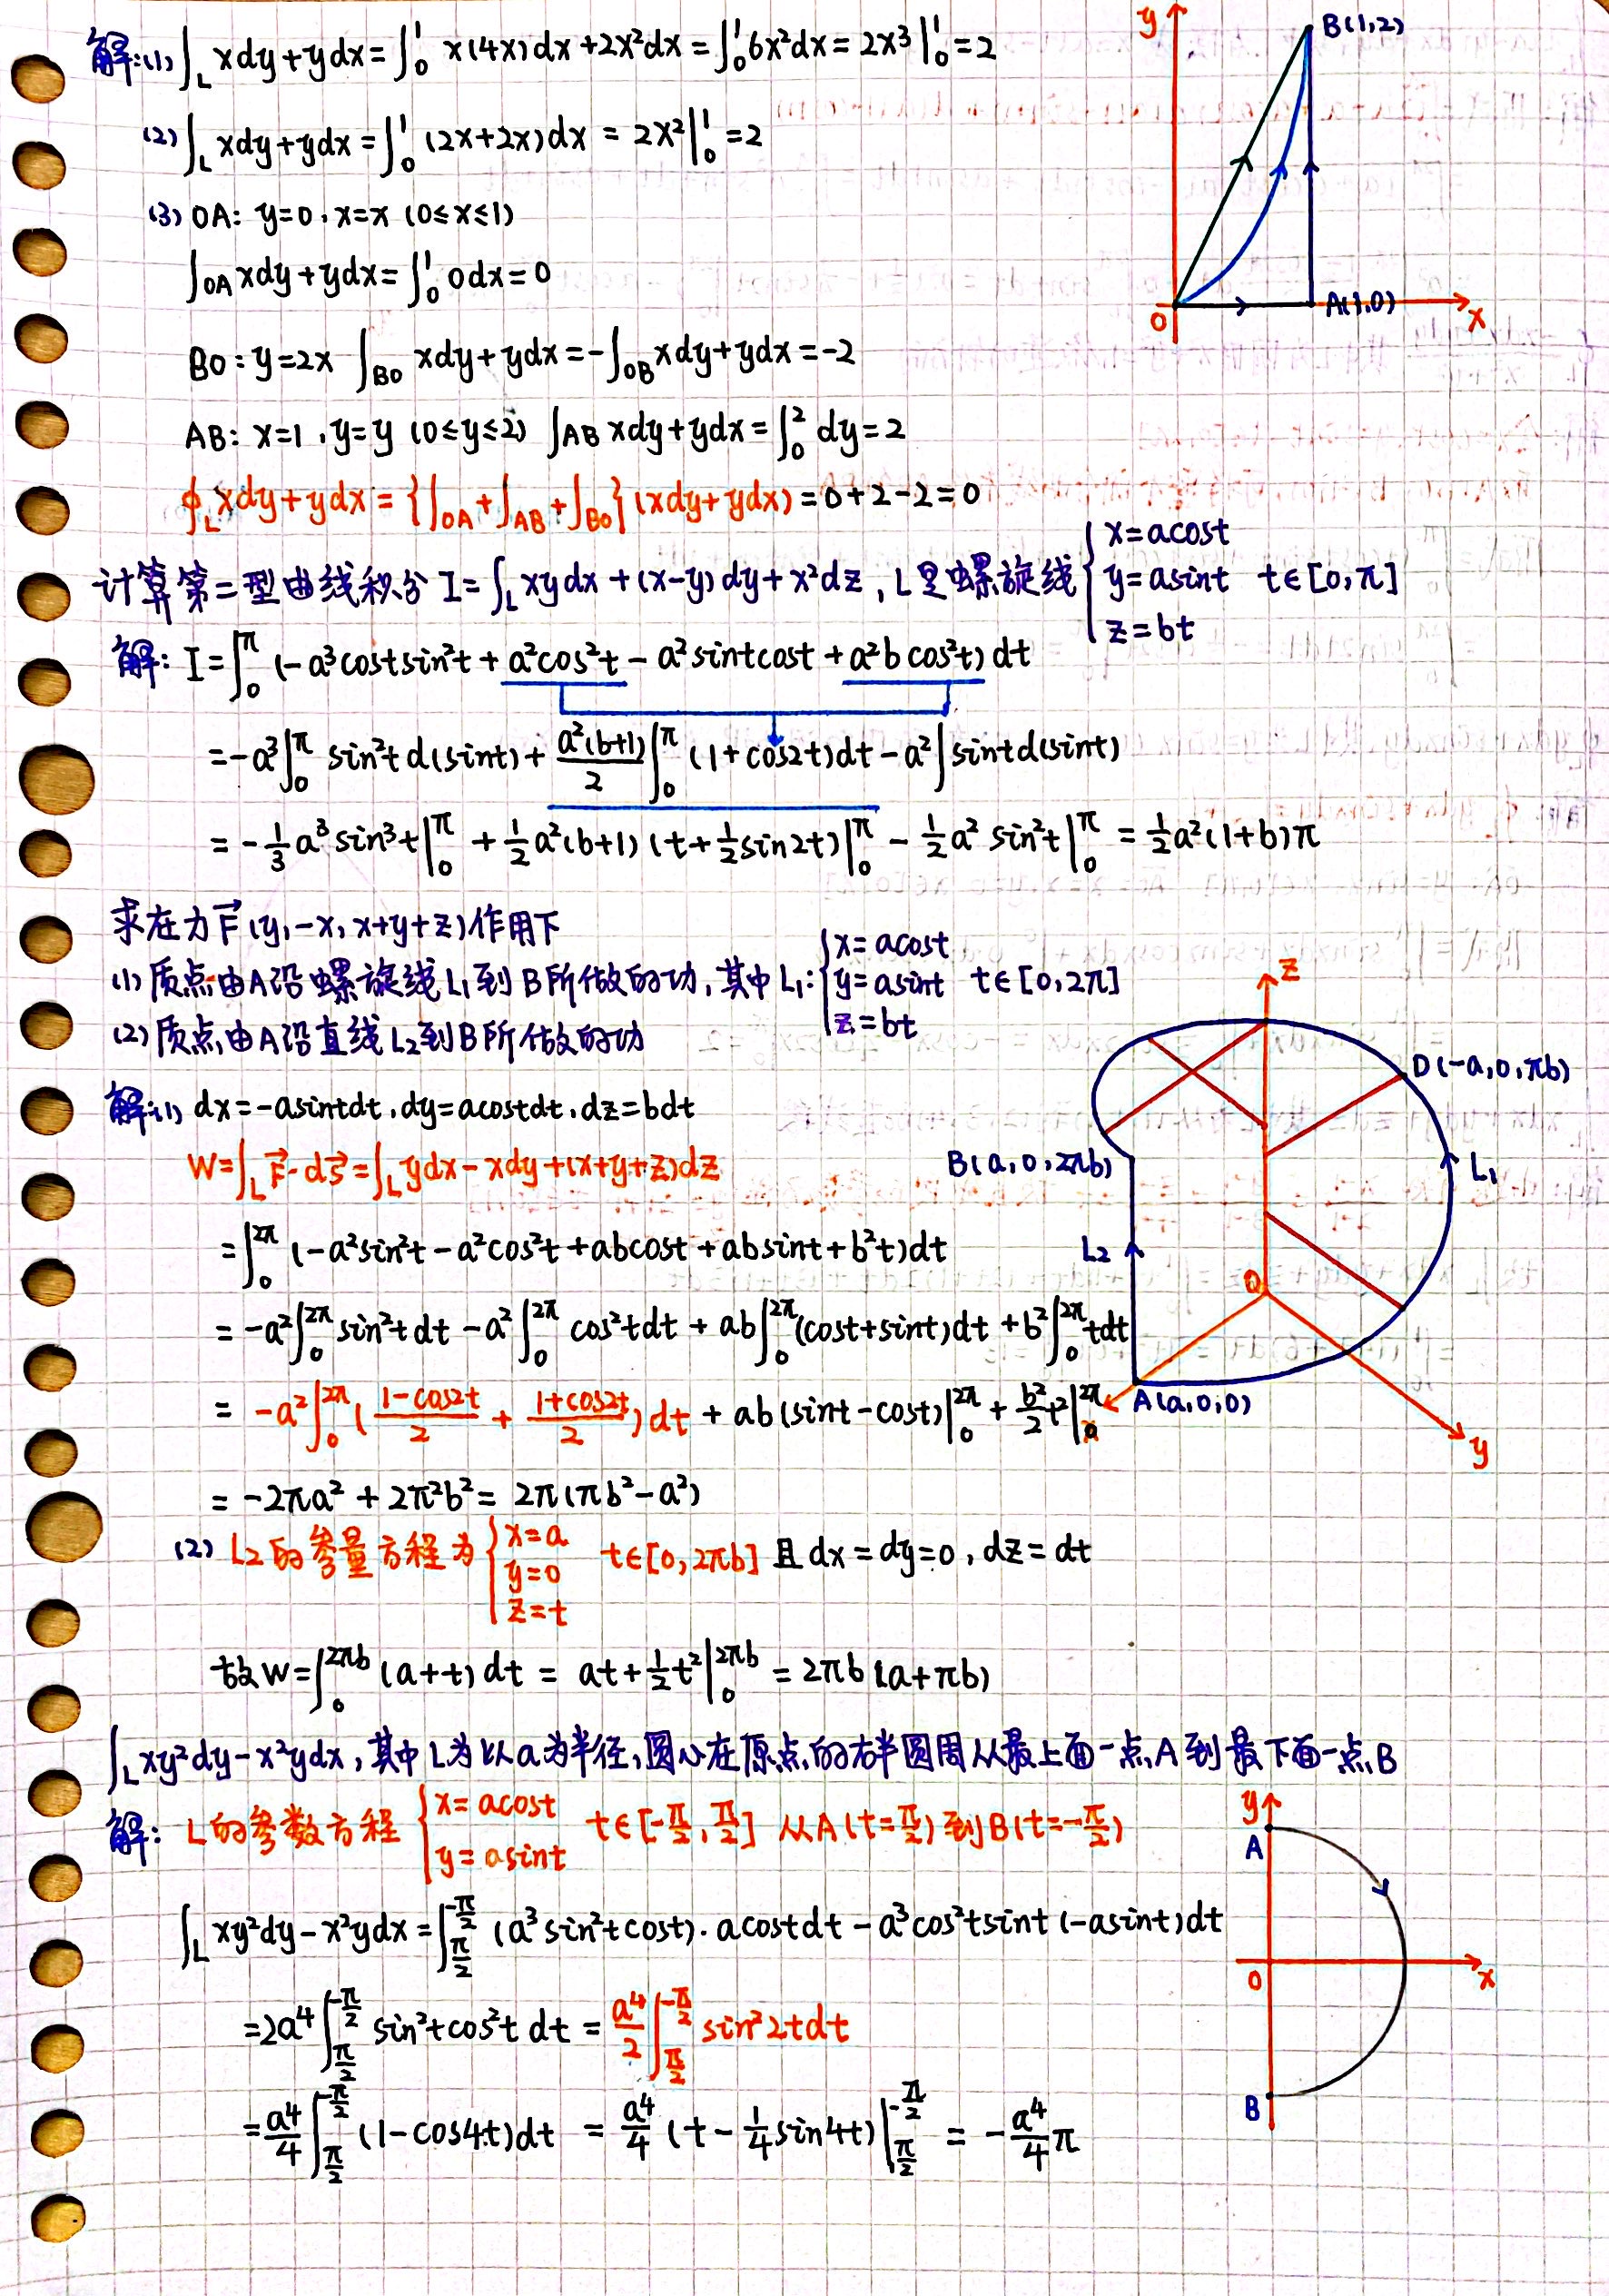 解:(1) ∫_L xdy+ydx=∫_0^1 x(4x)dx+2x²dx=∫_0^1 6x²dx=2x³|_0^1=2
(2) ∫_L xdy+ydx=∫_0^1 (2x+2x)dx=2x²|_0^1=2
(3) OA: y=0, x=x (0≤x≤1)
∫_OA xdy+ydx=∫_0^1 0dx=0
BO: y=2x ∫_BO xdy+ydx=-∫_OB xdy+ydx=-2
AB: x=1, y=y (0≤y≤2) ∫_AB xdy+ydx=∫_0^2 dy=2
∮_L xdy+ydx={∫_OA+∫_AB+∫_BO}(xdy+ydx)=0+2-2=0
y
B(1,2)
O
A(1,0)
x
计算第二型曲线积分 I=∫_L xydx+(x-y)dy+x²dz, L是螺旋线 { x=acost
y=asint t∈[0,π]
z=bt
解: I=∫_0^π (-a³costsin²t+a²cos²t-a²sintcost+a²bcos²t)dt
=-a³∫_0^π sin²td(sint)+a²(b+1)/2 ∫_0^π (1+cos2t)dt-a²∫sintd(sint)
=-1/3 a³sin³t|_0^π+1/2 a²(b+1)(t+1/2 sin2t)|_0^π-1/2 a²sin²t|_0^π=1/2 a²(1+b)π
求在力F⃗(y,-x,x+y+z)作用下
(1) 质点由A沿螺旋线L₁到B所做的功,其中L₁: { x=acost
y=asint t∈[0,2π]
z=bt
(2) 质点由A沿直线L₂到B所做的功
解:(1) dx=-asintdt, dy=acostdt, dz=bdt
W=∫_L F⃗·ds⃗=∫_L ydx-xdy+(x+y+z)dz
=∫_0^2π (-a²sin²t-a²cos²t+abcost+absint+b²t)dt
=-a²∫_0^2π sin²tdt-a²∫_0^2π cos²tdt+ab∫_0^2π (cost+sint)dt+b²∫_0^2π tdt
=-a²∫_0^2π ((1-cos2t)/2+(1+cos2t)/2)dt+ab(sint-cost)|_0^2π+b²/2 t²|_0^2π
=-2πa²+2π²b²=2π(πb²-a²)
z
D(-a,0,πb)
B(a,0,2πb)
L₁
L₂
O
A(a,0,0)
x
y
(2) L₂的参量方程为 { x=a
y=0 t∈[0,2πb] 且dx=dy=0, dz=dt
z=t
故W=∫_0^2πb (a+t)dt=at+1/2 t²|_0^2πb=2πb(a+πb)
∫_L xy²dy-x²ydx,其中L为以a为半径,圆心在原点的右半圆周从最上面一点A到最下面一点B
解: L的参数方程 { x=acost
y=asint t∈[-π/2,π/2] 从A(t=π/2)到B(t=-π/2)
∫_L xy²dy-x²ydx=∫_{π/2}^{-π/2} (a³sin²tcost)·acostdt-a³cos²tsint(-asint)dt
=2a⁴∫_{π/2}^{-π/2} sin²tcos²tdt=a⁴/2 ∫_{π/2}^{-π/2} sin²2tdt
=a⁴/4 ∫_{π/2}^{-π/2} (1-cos4t)dt=a⁴/4 (t-1/4 sin4t)|_{π/2}^{-π/2}=-a⁴/4 π
y
A
O
x
B